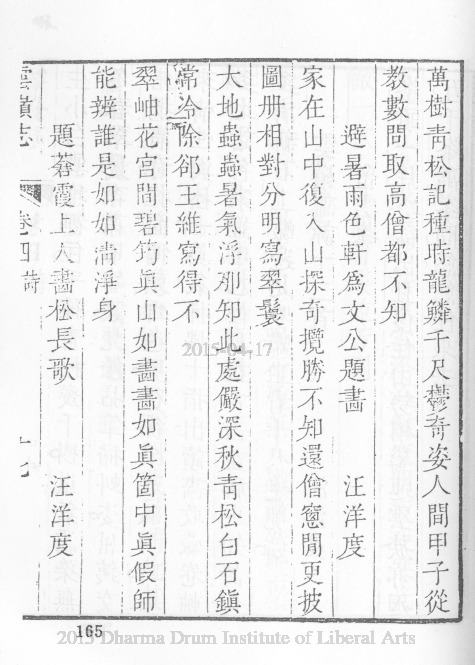 萬樹青松記種時龍鱗千尺鬱奇姿人間甲子從
教數問取高僧都不知
避暑雨色軒爲文公題畫 汪洋度
家在山中復入山探奇攬勝不知還僧窻閒更披
圖册相對分明寫翠鬟
大地蟲蟲暑氣浮那知此處嚴深秋青松白石鎭
常冷除郤王維寫得不
翠岫花宮間碧筠眞山如畵畵如眞箇中眞假師
能辨誰是如如淸淨身
題蒼霞上人畵松長歌 汪洋度
雲嶺志 卷四 詩
2015-04-17
165
2015 Dharma Drum Institute of Liberal Arts